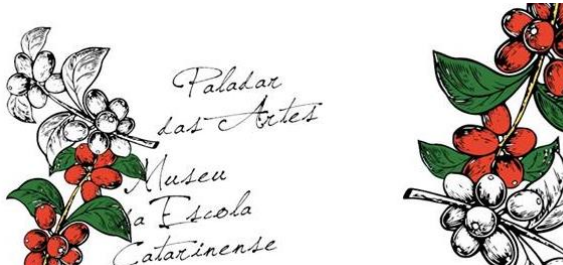 Paladar
das Artes
Museu
a Escola
Catarinense